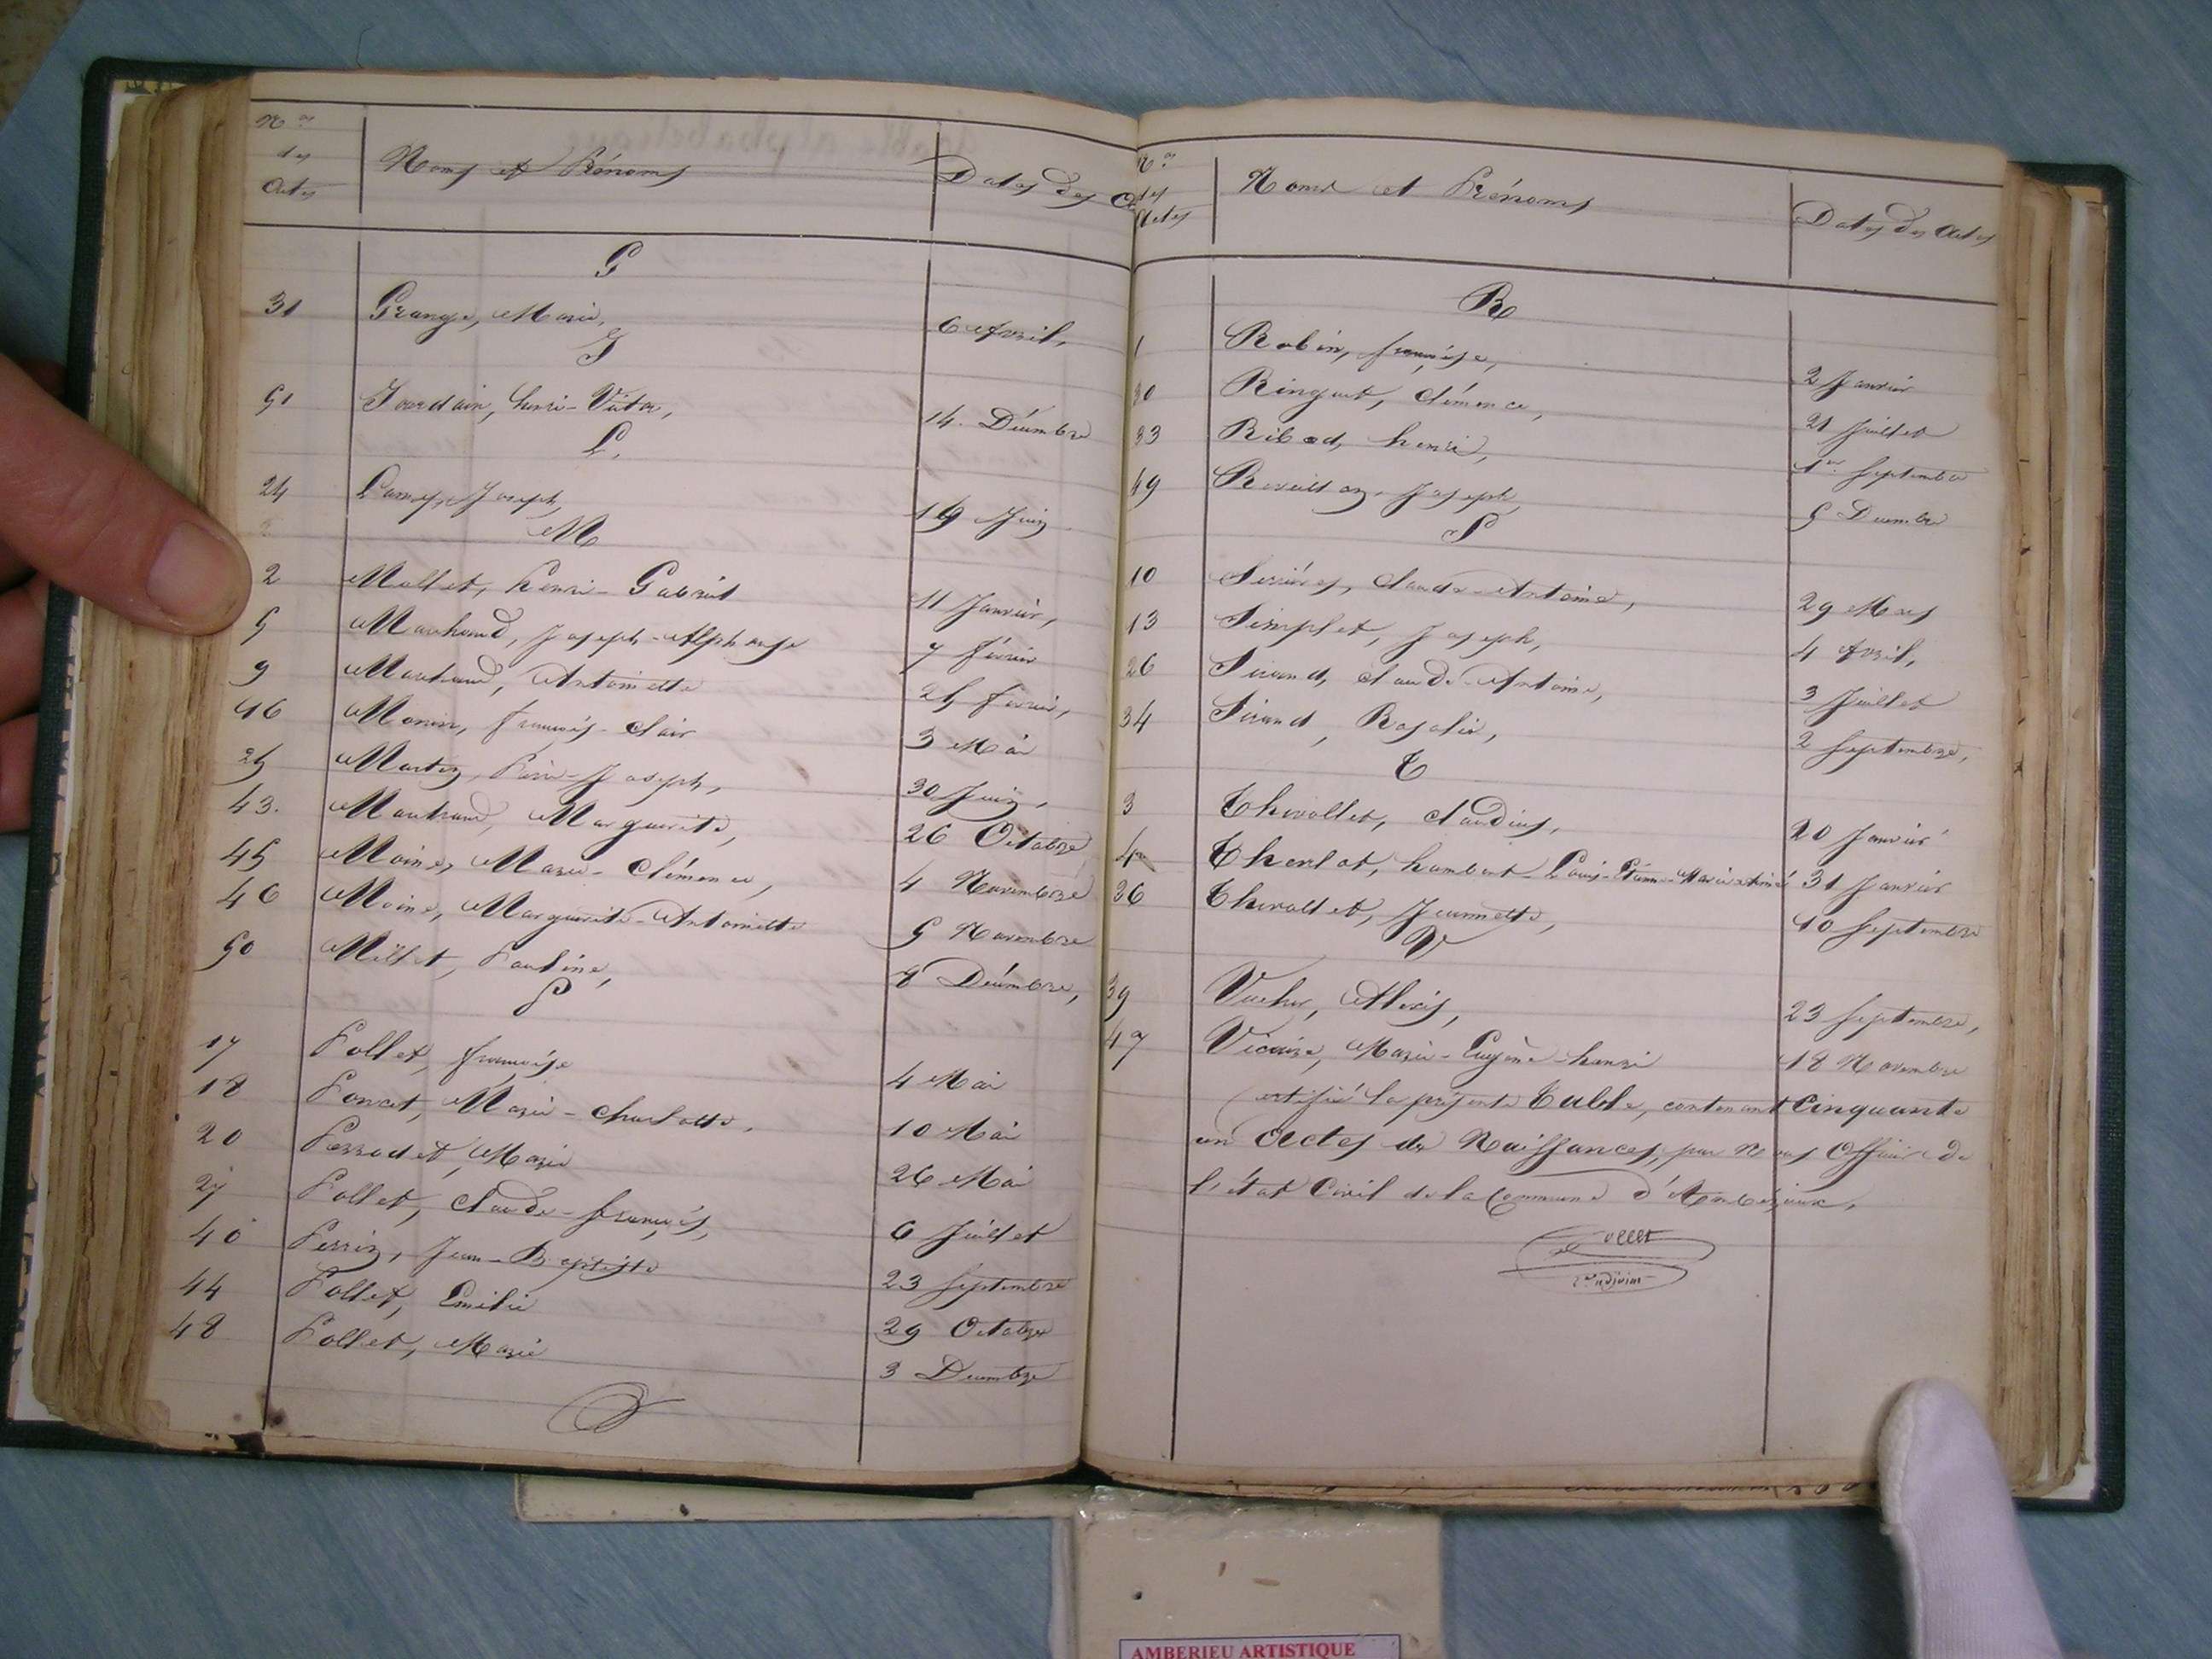 Nos
des
Actes
Noms et Prénoms
Dates des
G
31 Grange, Marie, 6 Avril,
J
51 Jourdain, henri-Victor, 14. Décembre
L.
24 Lamy, Joseph, 19 Juin
M
2 Mollet, henri-Gabriel 11 Janvier,
5 Marchand, Joseph-Alphonse 7 février
9 Marchand, Antoinette 25 février,
16 Monin, françois-clair 3 Mai
25 Martin, Pierre-Joseph, 30 Juin,
43. Marchand, Marguerite, 26 Octobre
45 Moine, Marie-Clémence, 4 Novembre
46 Moine, Marguerite-Antoinette 5 Novembre
50 Millet, Pauline, 8 Décembre,
P
17 Pollet, françoise 4 Mai
18 Poncet, Marie-charlotte, 10 Mai
20 Perrodet, Marie 26 Mai
27 Pollet, Claude-françois, 6 Juillet
40 Perrin, Jean-Baptiste 23 Septembre
44 Pollet, Emélie 29 Octobre
48 Pollet, Marie 3 Decembre
Nos
des
Actes
Noms et Prénoms
Dates des Actes
R
1 Robin, françoise, 2 Janvier
30 Ringuet, Clémence, 21 Juillet
33 Ribod, henri, 1er Septembre
49 Joseph, 5 Decembre
S
10 Serrières, Claude-Antoine, 29 Mars
13 Simplet, Joseph, 4 Avril,
26 Sirand, Claude-Antoine, 3 Juillet
34 Sirand, Rosalie, 2 Septembre,
T
3 Thevollet, Claudius, 20 Janvier
4 humbert-Louis-Etienne-Marie-Aimé 31 Janvier
36 Thevollet, Jeannette, 10 Septembre
V
39 Alexis, 23 Septembre,
47 Vicaire, Marie-Eugène-henri 18 Novembre
Certifié la présente Table, contenant Cinquante
un Actes de Naissances, par Nous Officier de
l'état Civil de la Commune d'Ambérieux,
Collet
2e adjoint
AMBERIEU ARTISTIQUE